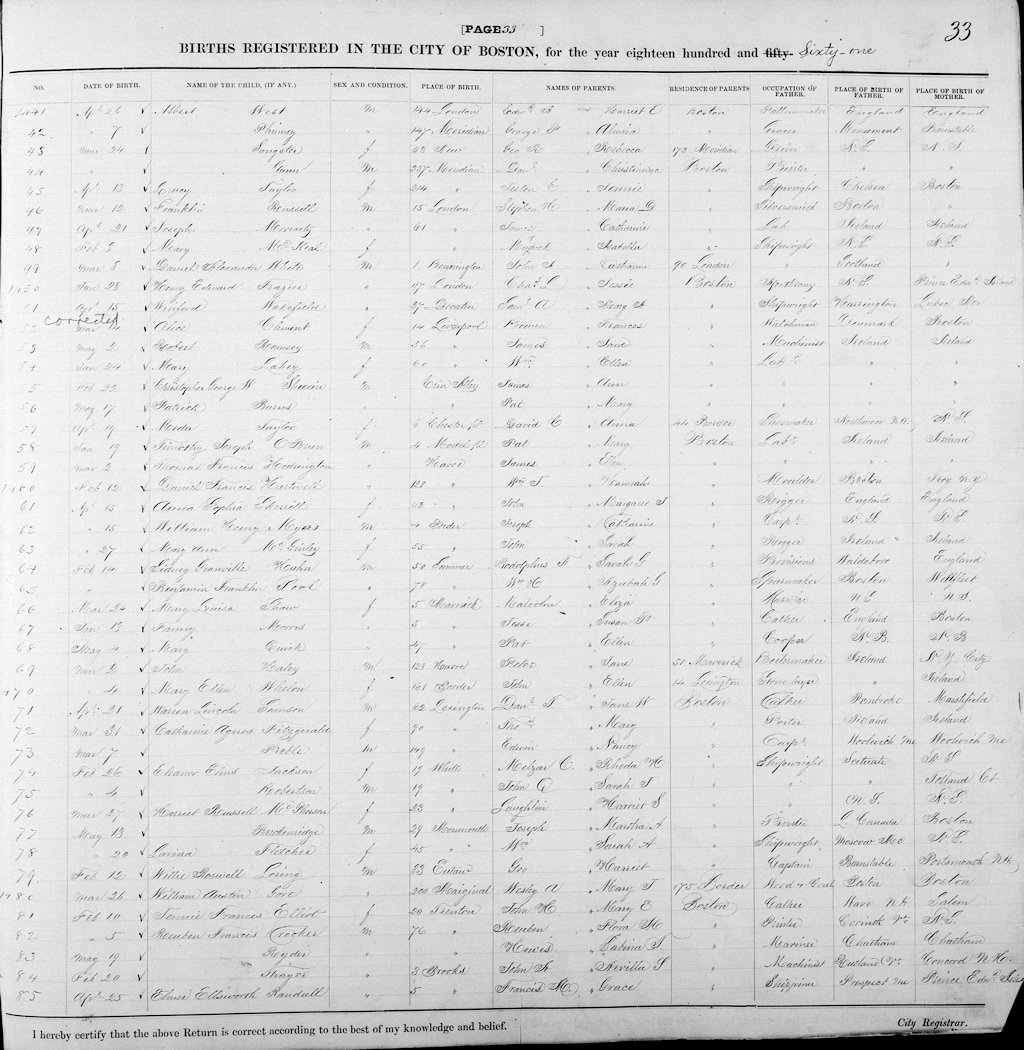 [PAGE 33 ]
33
BIRTHS REGISTERED IN THE CITY OF BOSTON, for the year eighteen hundred and fifty- Sixty-one
NO. DATE OF BIRTH. NAME OF THE CHILD, (IF ANY.) SEX AND CONDITION. PLACE OF BIRTH. NAMES OF PARENTS. RESIDENCE OF PARENTS OCCUPATION OF FATHER. PLACE OF BIRTH OF FATHER. PLACE OF BIRTH OF MOTHER.
1441 Apl 26 Albert West M 144 London Harriet E Boston Patternmaker England England
42 " 7 Phinney " 147 Meridian George P " Almira " Grocer Monument Barnstable
43 Mar 24 Sangster f Geo R " Rebecca 172 Meridian N.S. N.S.
44 " " Gunn M 227 Meridian Danl " Christianna Boston " "
45 Apl 13 Lucy Taylor f 214 " " Jennie " Shipwright Chelsea Boston
46 Mar 12 Franklin Russell M 15 London Stephen H " Maria D " Silversmith Boston "
47 Apl 21 Joseph Moriarty " 61 " " Catharine " Lab Ireland Ireland
48 Feb 2 Mary f " " Isabella " Shipwright N.S. N.S.
49 Mar 5 Daniel Alexander White M 1 Bennington John " Catharine 90 London " Scotland "
1450 Jan 28 Henry Edward Frazier " 117 London Chas L " Jessie Boston Apothecary N.S. Prince Edwd Island
51 Apl 15 Winford Wakefield " 27 Decatur Saml A " Mary " Shipwright
corrected
52 Mar 14 Alice Clement f 14 Liverpool " Frances " Watchman Denmark Boston
53 May 2 Robert Ramsey M 56 " James " Jane " Machinist Ireland Ireland
54 Jan 24 Mary Lahey f 60 " Wm " Ellen " Labr " "
55 Feb 22 Christopher George W M Erin Alley James " Ann " " " "
56 May 17 Patrick Burns " " Pat " Mary " " " "
57 Apl 19 Meda Taylor f 6 Chester pl David C " Anna 44 Border Shoemaker Northwood N.H. N.S.
58 Jan 19 Timothy Joseph O'Brien M 4 Model pl Pat " Mary Boston Labr Ireland Ireland
59 Mar 2 Thomas Francis Hedrington " Havre James " Ellen " " " "
1460 Feb 12 Daniel Francis Hartwell " 128 " Wm T " Hannah " Moulder Boston Troy N.Y.
61 Apl 15 Anna Sophia Sherrill f 112 " John " Margaret " Rigger England England
62 " 15 William Henry Myers M 4 Border Joseph " Catharine " Carpr N.S. N.S.
63 " 27 Mary Ann McGinley f 55 " John " Sarah " Rigger Ireland Ireland
64 Feb 14 Sidney Granville Hahn M 50 Sumner Rodolphus F " Sarah G " Provisions Waldoboro England
65 " " Benjamin Franklin Pool " 78 " Wm H " Azubah G " Sparmaker Boston Wellfleet
66 Mar 24 Mary Louisa Shaw f 5 Maverick Malcolm " Eliza " Mariner N.S. N.S.
67 Jan 13 Fanny Morris " 5 " Jesse " Susan " Calker England Boston
68 May 4 Mary Quirk " 47 " Pat " Ellen " Cooper N.B. N.B
69 Mar 2 John Haley M 128 Havre Peter " Jane 51 Maverick Boilermaker Ireland N.Y. City
1470 " 4 Mary Ellen Whelon f 161 Border John " Ellen 14 Lexington Stonelayer " Ireland
71 Apl 21 Warren Lincoln Samson M 62 Lexington Danl T " Jane W Boston Calker Pembroke Marshfield
72 Mar 31 Catharine Agnes Fitzgerald f 90 " Thos " Mary " Porter Ireland Ireland
73 Mar 7 Preble M 149 " Edwin " Nancy " Carpr Woolwich Me Woolwich Me
74 Feb 26 Eleanor Elms Jackson f 19 White Melzar C. " Rhoda H " Shipwright Scituate N.S.
75 " 4 Robertson M 19 " John G " Sarah T " " " Tolland Ct
76 Mar 27 Harriet Russell McPherson f 23 " Laughlin " Harriet S " " N.S. N.S.
77 May 13 Breckenridge M 29 Monmouth Joseph " Martha A " L. Canada Boston
78 " 20 Lavina Fletcher f 45 " Wm " Sarah A " Shipwright Moscow Me N.S.
79 Feb 12 Willie Roswell Loring M 33 Eutaw Geo " Harriet " Captain Barnstable Portsmouth N.H.
1480 Mar 26 William Austin Gove " 200 Marginal Wesley A " Mary T 175 Border Wood & Coal Boston Boston
81 Feb 10 Jennie Frances Elliot f 20 Trenton John H " Mary E Boston Calker Ware N.H Salem
82 " 5 Reuben Francis Crooker M 76 " Reuben " Flora M " Printer Corinth Vt N.S.
83 May 19 Ryder " " Howes " Sabina T " Mariner Chatham Chatham
84 Feb 20 Thayer " 3 Brooks John " S " Machinist Rutland Vt Concord N.H.
85 Apl 25 Elmer Ellsworth Randall " 5 " Francis M. " Grace " Shipjoiner Prospect Me Prince Edwd Isld
I hereby certify that the above Return is correct according to the best of my knowledge and belief.
City Registrar.